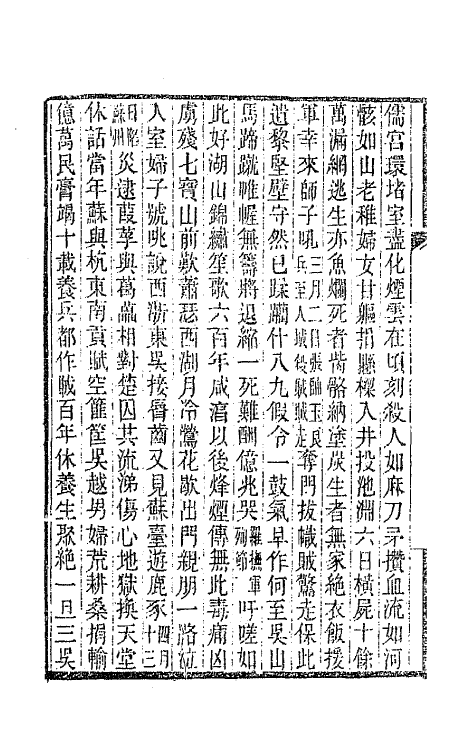 儒宮環堵室盡化煙雲在頃刻殺人如麻刀矛攢血流如河
骸如山老稚婦女甘軀捐懸樑入井投池淵六日橫屍十餘
萬漏網逃生亦魚爛死者胔骼納塗炭生者無家絕衣飯援
軍幸來師子吼三月二日張帥玉良兵至入城殺賊賊走奪門拔幟賊驚走保此
遺黎堅壁守然已蹂躪什八九假令一鼓氣早作何至吳山
馬蹄蹴唯幄無籌將退縮一死難酬億兆哭羅撫軍殉節吁嗟如
此好湖山錦繡笙歌六百年咸淳以後烽煙傳無此毒痛凶
虜殘七寶山前歎蕭瑟西湖月冷鶯花歇出門親朋一路泣
入室婦子號咷說西浙東吳接脣齒又見蘇臺遊鹿豕四月十三
日陷蘇州災逮葭莩與葛藟相對楚囚其流涕傷心地獄換天堂
休話當年蘇與杭東南貢賦空篚筐吳越男婦荒耕桑捐輸
億萬民膏竭十載養兵都作賊百年休養生聚絕一旦三吳